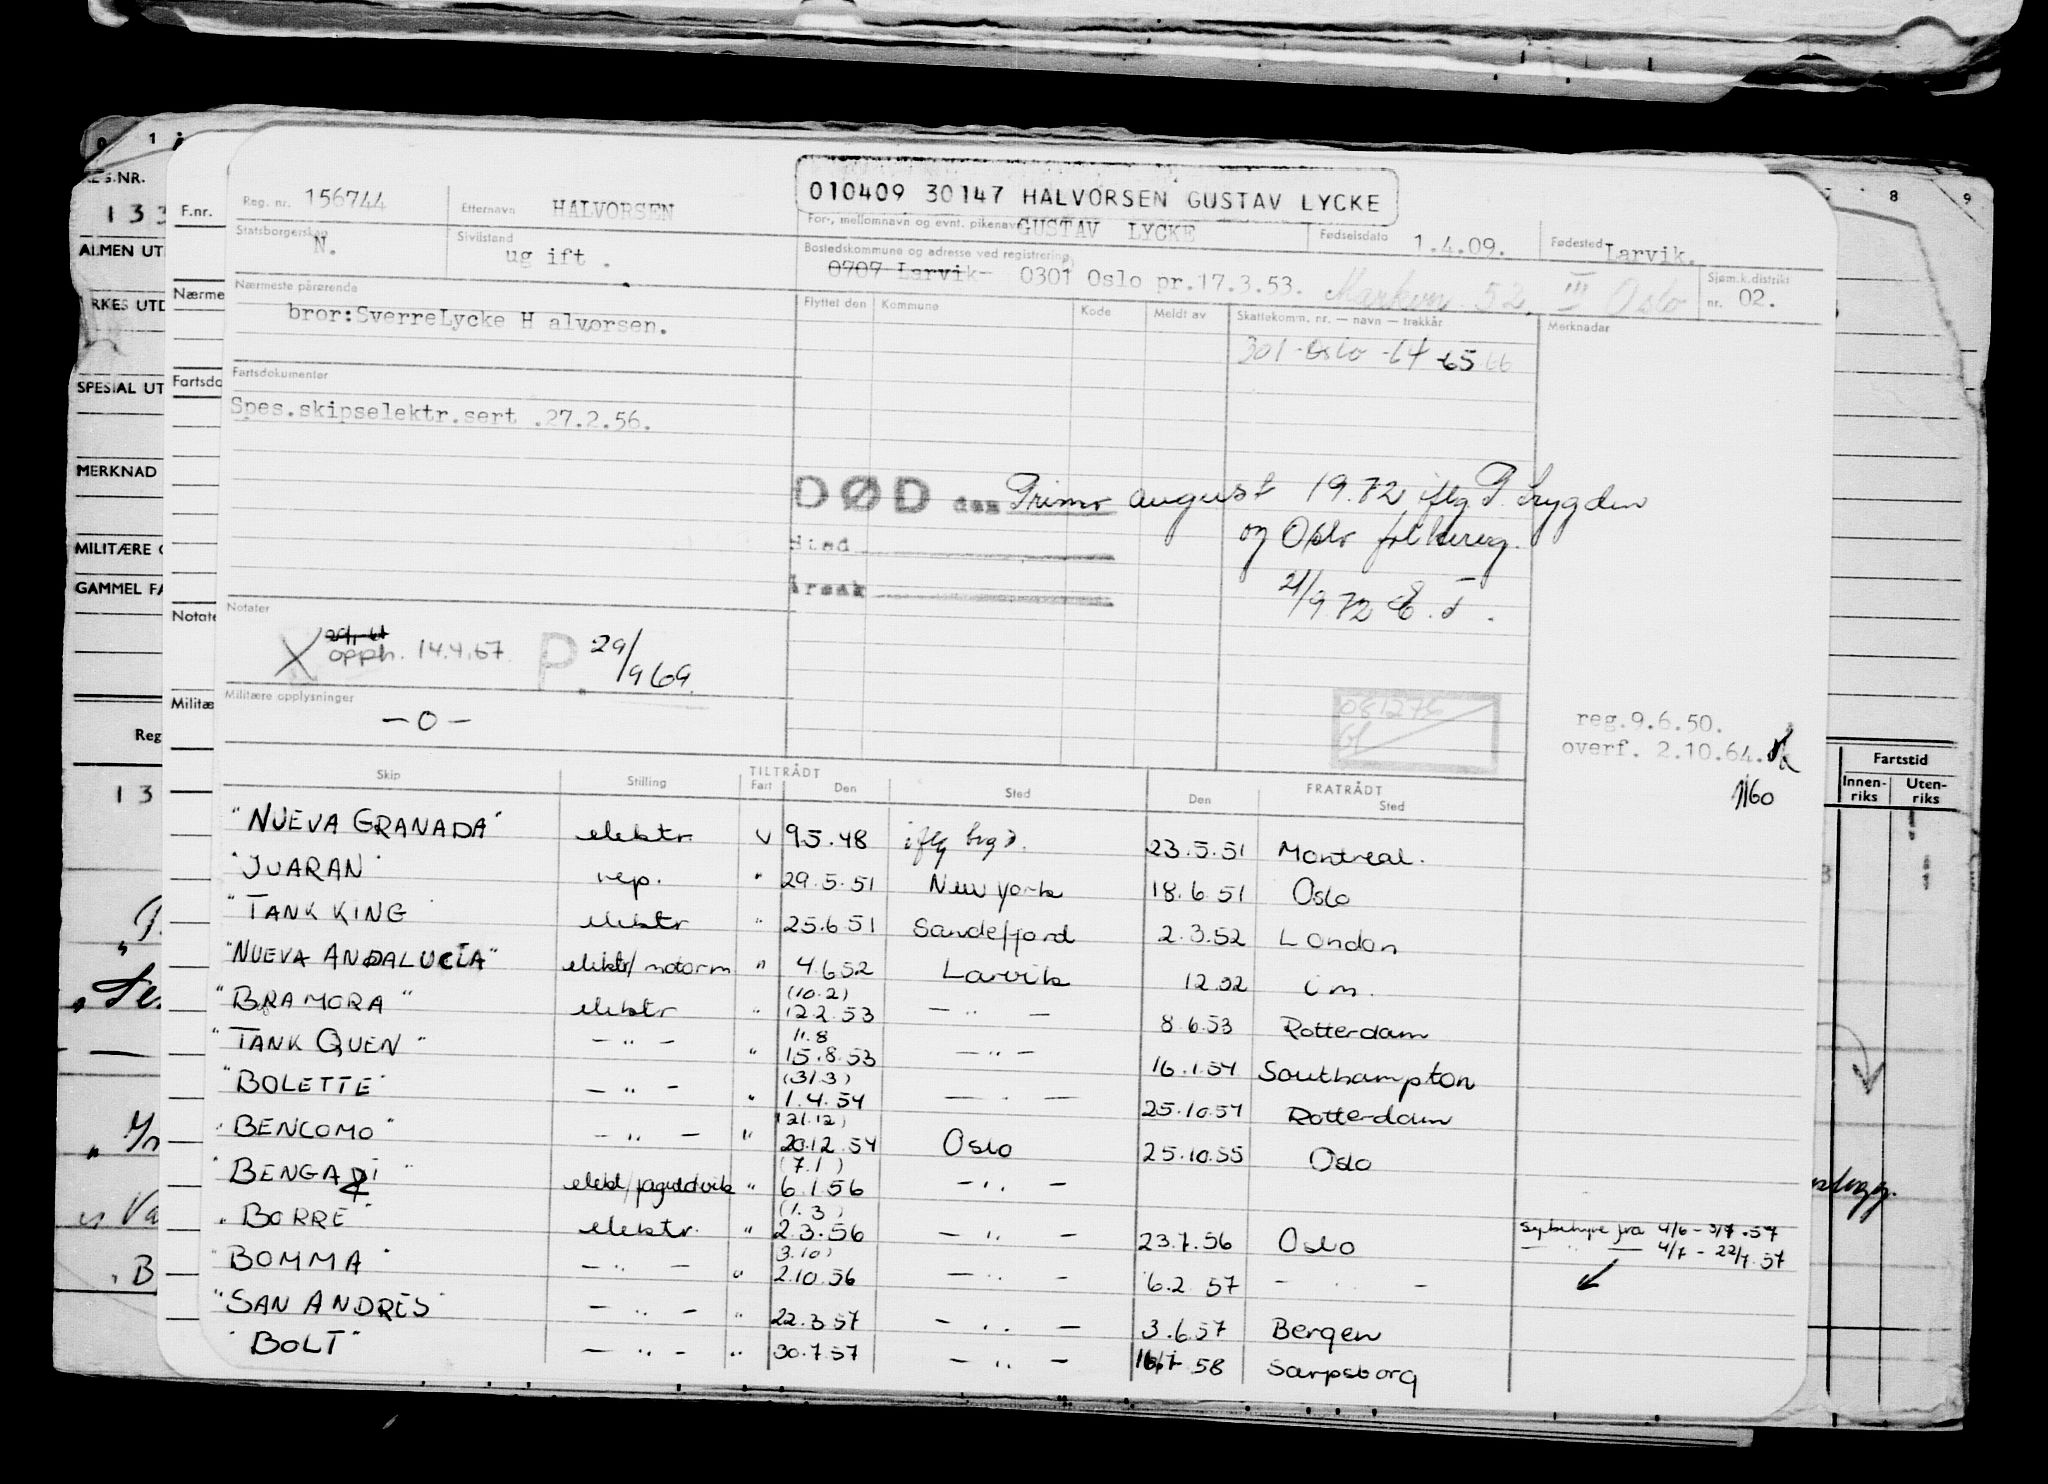 010409 30147 HALVORSEN GUSTAV LYCKE
Reg. nr. 156744 Etternavn HALVORSEN For-, mellomnavn og evnt. pikenavn GUSTAV LYCKE Fødselsdato 1.4.09. Fødested Larvik.
Statsborgerskap N. Sivilstand ug ift . Bostedskommune og adresse ved registrering 0707 Larvik- 0301 Oslo pr.17.3.53. Markvn 52. III Oslo Sjøm.k.distrikt nr. 02.
Nærmeste pårørende Flyttet den Kommune Kode Meldt av Skattekomm. nr. — navn — trekkår Merknader
bror:SverreLycke H alvorsen. 301-Oslo -64 65 66
Fartsdokumenter
Spes.skipselektr.sert .27.2.56.
DØD den Primo august 1972 iflg.
Sted og Oslo folkereg.
Årsak 21/9.72
Notater
oppn. 14.4.67. P. 29/9 69.
Militære opplysninger
— 0 —
reg.9.6.50.
overf. 2.10.64.
1160
Skip Stilling TILTRÅDT Fart Den Sted FRATRÅDT Den Sted
"NUEVA GRANADA" elektr. v 9.5.48 iflg 23.5.51 Montreal.
"JUARAN" rep. " 29.5.51 New York 18.6.51 Oslo
"TANK KING elektr " 25.6.51 Sandefjord 2.3.52 London
"NUEVA ANDALUCIA" elektr/motorm " 4.6.52 Larvik i m.
"BRAMORA" elektr " (10.2) 12.2.53 — " — 8.6.53 Rotterdam
"TANK QUEN" — " — " 11.8 15.8.53 — " — 16.1.54 Southampton
"BOLETTE" — " — " (31.3) 1.4.54 — " — 25.10.54 Rotterdam
"BENCOMO" — " — " (21.12) 20.12.54 Oslo 25.10.55 Oslo
"BENGAZI" " (7.1) 6.1.56 — " —
"BORRE" elektr. " (1.3) 2.3.56 — " — 23.7.56 Oslo
4/6 - 3/7.57
— " — 4/7 - 22/7.57
"BOMMA" — " — " 3.10) 2.10.56 — " — 6.2.57 — " —
"SAN ANDRES" — " — " 22.3.57 — " — 3.6.57 Bergen
"BOLT" — " — " 30.7.57 — " — 58 Sarpsborg
REG.NR.
1 3 3
F.nr.
Nærme
Fartsdo
SPESIAL UT
MERKNAD
MILITÆRE
GAMMEL FA
Notate
Militæ
Reg
1 3
Fartstid
Innen-riks Uten-riks
8 9